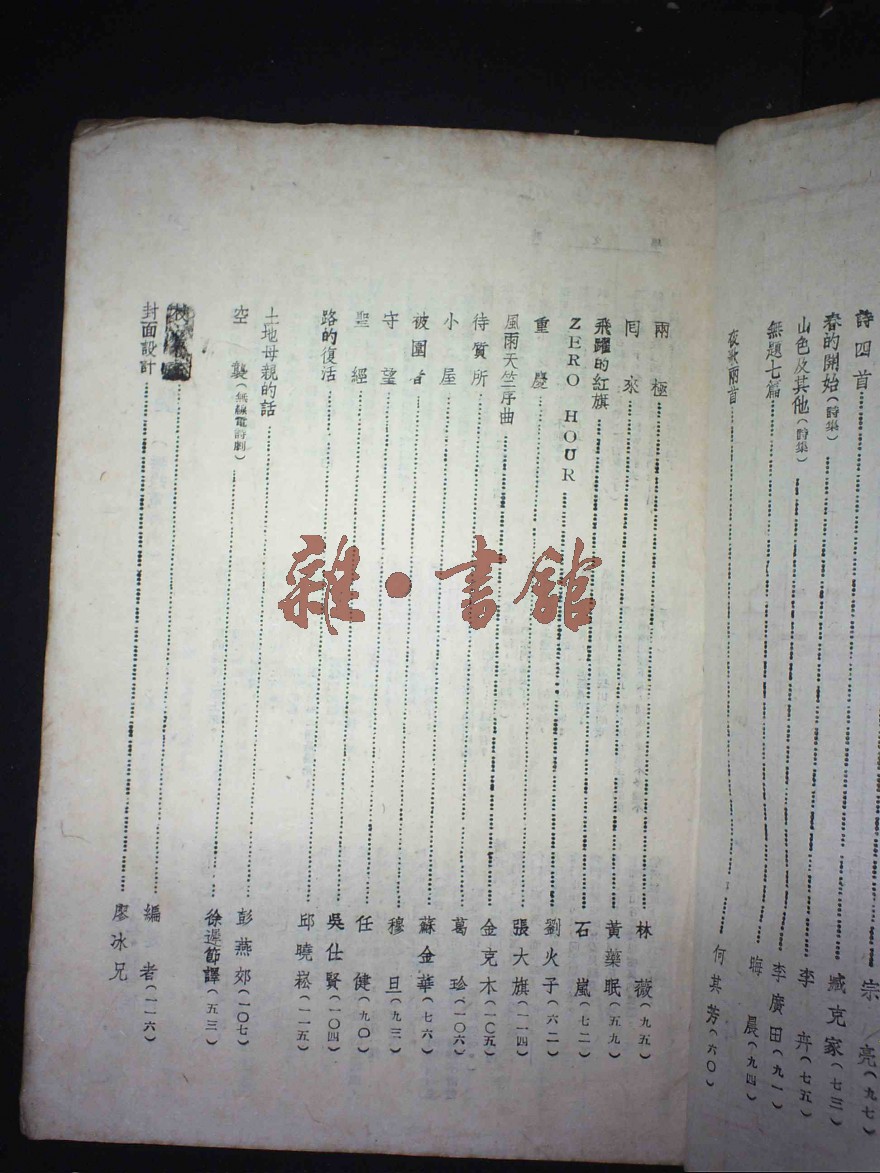 宗亮(九七)
詩四首……臧克家(七三)
春的開始(詩集)……李卉(七五)
山色及其他(詩集)……李廣田(九一)
無題七篇……晦晨(九四)
夜歌兩首……何其芳(六〇)
兩極……林薇(九五)
囘來……黃藥眠(五九)
飛躍的紅旗……石嵐(七二)
ZERO HOUR……劉火子(六二)
重慶……張大旗(一一四)
風雨天竺序曲……金克木(一〇五)
待質所……葛珍(一〇六)
小屋……蘇金華(七六)
被圍者……穆旦(九三)
守望……任健(九〇)
聖經……吳仕賢(一〇四)
路的復活……邱曉崧(一一五)
土地母親的話……彭燕郊(一〇七)
空襲(無線電詩劇)……徐遲節譯(五三)
……編者(一一六)
封面設計……廖冰兄
雜·書館